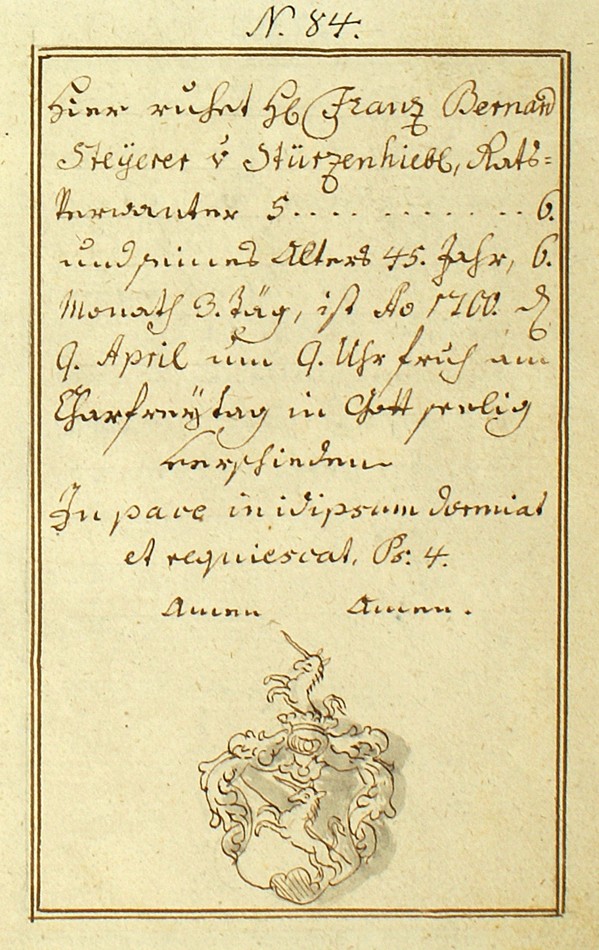 N. 84.
Hier ruhet H Franz Bernard
Steÿerer v Stürzenhiebl, Rats=
Verwanter 5............6.
und seines Alters 45. Jahr, 6.
Monath 3. Täg, ist Ao 1700. d
9. April um 9. Uhr fruh am
Charfreÿtag in Gott seelig
verschieden
In pace in idipsum dormiat
et requiescat, Ps: 4.
Amen Amen.